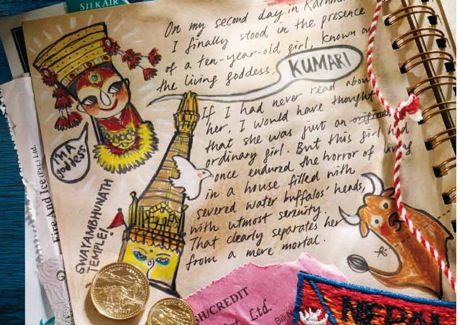 SILKAIR
On my second day in Kathm
I finally stood in the presence
of a ten-year-old girl, known as
the living goddess,
KUMARI
If I had never read about
her, I would have thought
that she was just an
ordinary girl. But this girl had
once endured the horror of living
in a house filled with
severed water buffalos' heads,
with utmost serenity.
That clearly separates her
from a mere mortal.
I'M A
goddess
SWAYAMBHUNATH
TEMPLE!
Fire And Ice
Ltd.
CREDIT
Ltd.
NEPAL